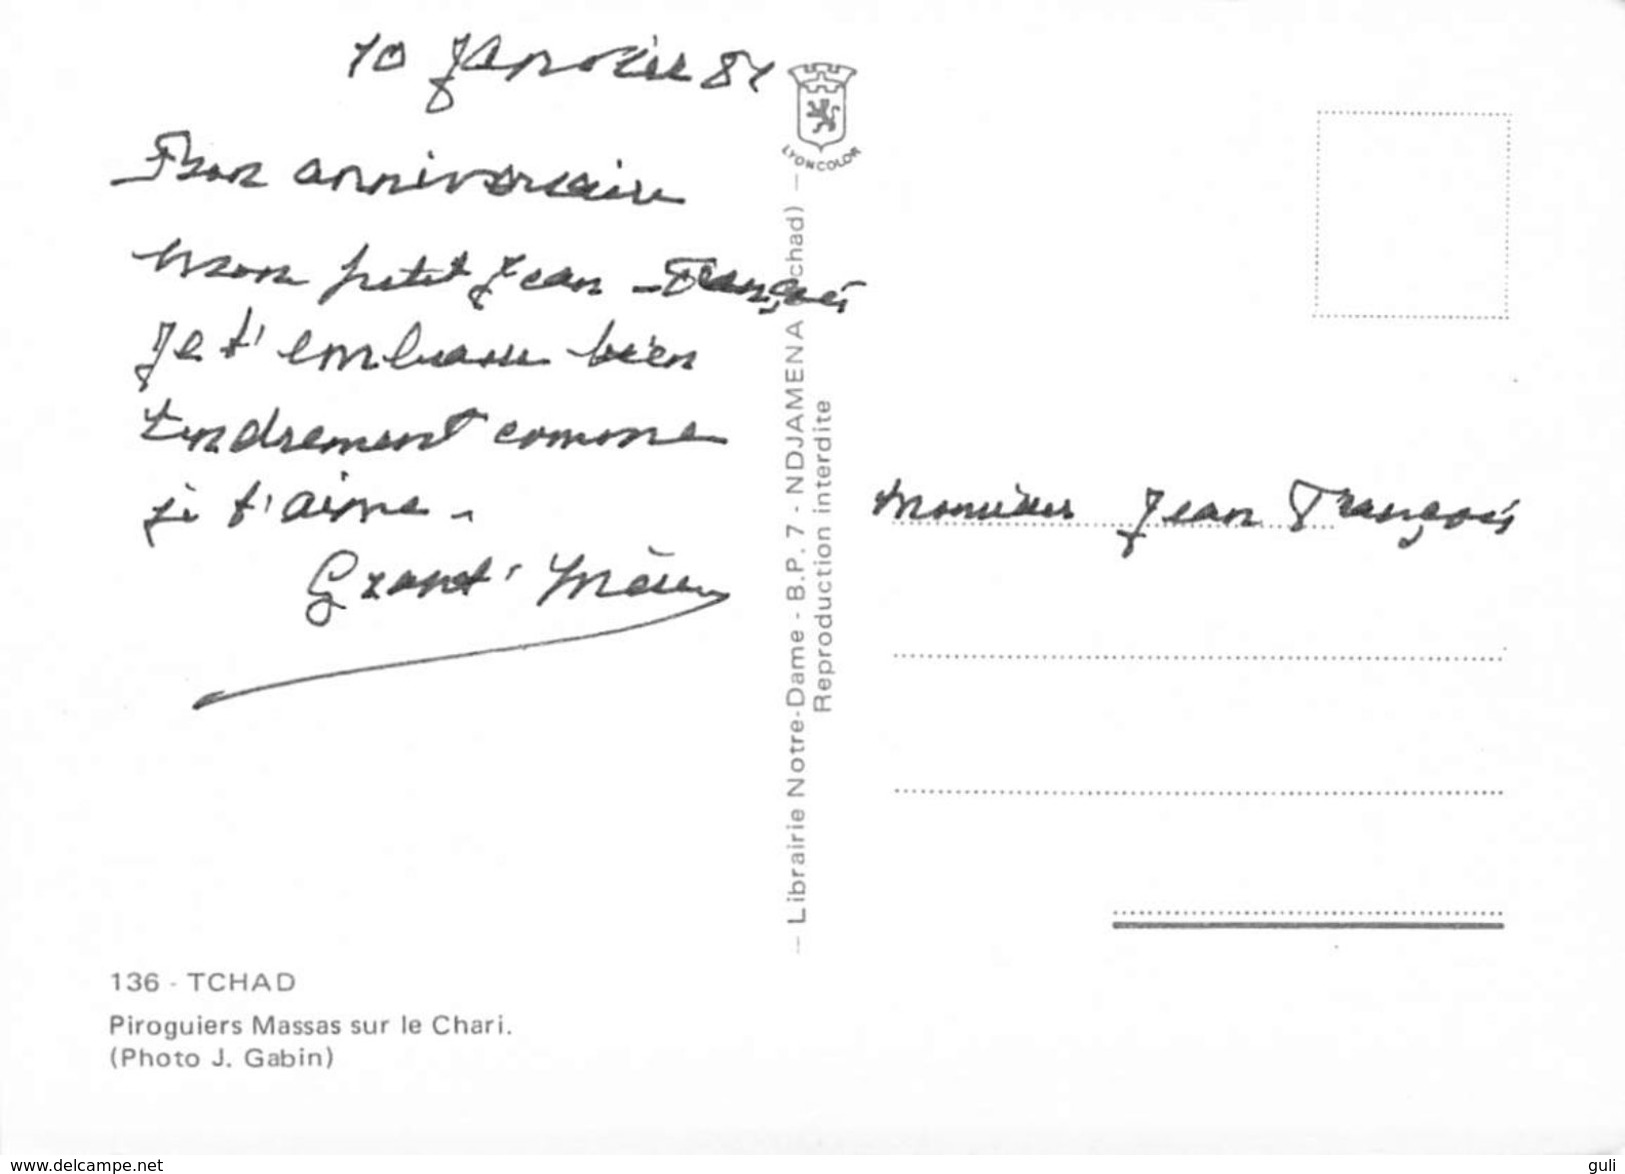 10 Janvier 81
Bon anniversaire
Mon petit Jean-François
Je t'embrasse bien
tendrement comme
je t'aime -
Grand'Mère
LYONCOLOR
— Librairie Notre-Dame - B.P. 7 - NDJAMENA (Tchad) —
Reproduction interdite
Monsieur Jean François
136 - TCHAD
Piroguiers Massas sur le Chari.
(Photo J. Gabin)
www.delcampe.net
guli